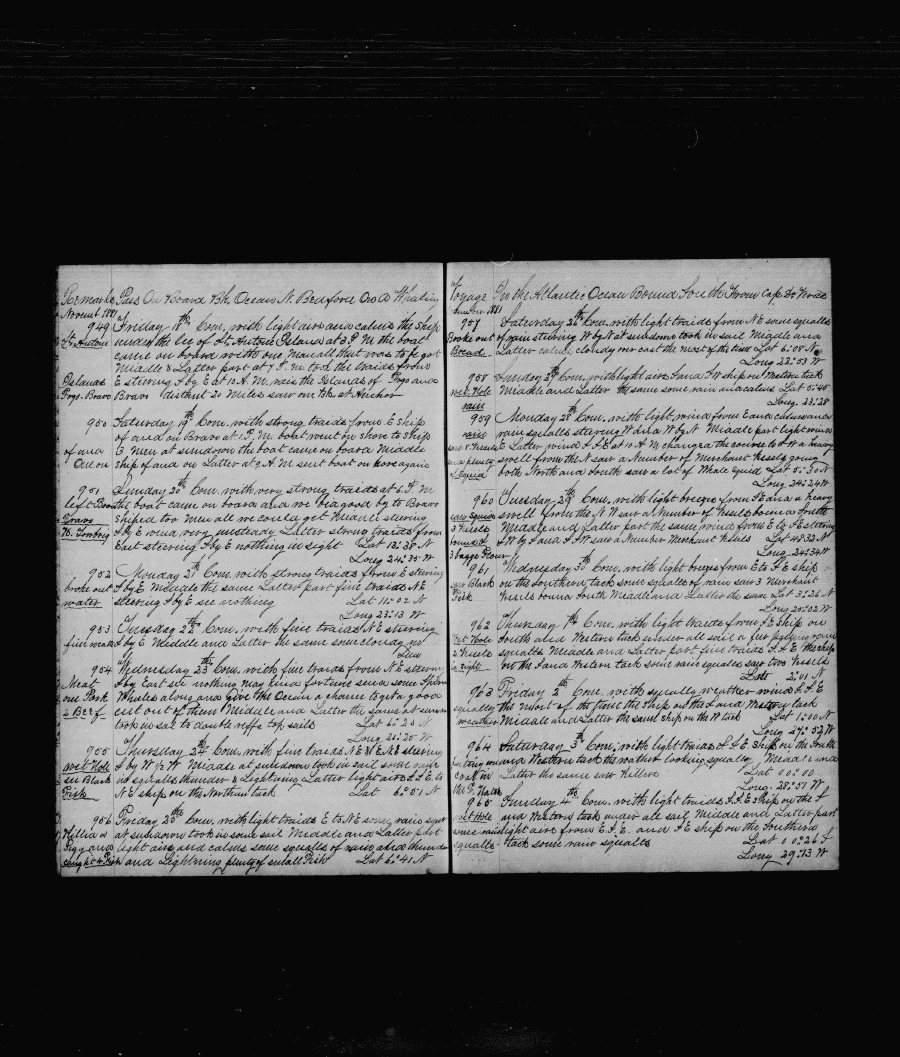 Remarks Pass On Board Bk. Ocean N. Bedford On A Whaling
Novemt 1881
949 Friday 18th Com. with light airs and calms the ship
St Antone under the lee of St. Antone Island at 3 P.M. the boat
came on board with one man all that was to be got
Middle & Latter part at 7 P.M. took the traids from
Islands E steering S by E at 10 A.M. rais the Islands of Fogo and
Fogo-Bravo Bravo distant 20 miles saw one Bk at Anchor
950 Saturday 19th Com. with strong traids from E Ship
of and on Bravo at 1 P.M. boat went on shore to Ship
of and 3 men at sundown the boat came on board Middle
on ship of and on Latter at 9 A.M. sent boat on shore again
951 Sunday 20th Com. with very strong traids at 6 P.M
left the boat came on board and we bid good by to Bravo
Bravo Shiped two men all we could get Middle steering
S by E wind very unsteady Latter strong traids from
East steering S by E nothing in sight Lat 13:38 N
Long 24:35 W
952 Monday 21st Com. with strong traids from E steering
broke out S by E Middle the same Latter part fine traids NE
water steering S by E see nothing Lat 11:02 N
Long 23:13 W
953 Tuesday 22nd Com. with fine traids NE steering
fine weather S by E Middle and Latter the same some cloudy no
Sun
954 Wednesday 23rd Com. with fine traids from NE steering
Meat S by East see nothing may kind fortune send some Sperm
one Pork Whales along and Give the Ocean a chance to get a good
2 Beef cut out of them Middle and Latter the same at sundown
took in sail to double reefs top sails Lat 6:20 N
Long 21:20 W
955 Thursday 24th Com. with fine traids NE & ENE steering
wet Hole S by W ½ W Middle at sundown took in sail some rain
see Black in squalls thunder & Lightning Latter light airs S S E to
Fish N E ship on the Northan tack Lat 6:51 N
956 Friday 25th Com. with light traids E to NE some rain squalls
Killed a at sundown took in some sail Middle and Latter part
Pigg and light airs and calms some squalls of rain and thunder
caught Fish and Lightning plenty of small Fish Lat 6:41 N
Voyage In the Atlantic Ocean Bound South From Cape De Verdes
1881
957 Saturday 26th Com. with light traids from NE some squalls
Broke out of rain steering W by N at sundown took in sail Middle and
Bread Latter calm cloudy over cast the most of the time Lat 6:08 N
Long 22:53 W
958 Sunday 27th Com. with light airs S and S W ship on Western tack
wet Hole Middle and Latter the same some rain and calms Lat 5:45
rain Long 23:28
959 Monday 28th Com. with light wind from E and calms and
rain rain squalls steering W and W by N Middle part light winds
saw 2 Vessels E Latter wind S S E at 10 A.M changed the course to S W a heavy
and plenty swell from the N saw a Number of Merchant Vessels going
of Squid both North and South saw a lot of Whale Squid Lat 5:30 N
Long 24:24 W
960 Tuesday 29th Com. with light breezes from S E and a heavy
saw Squid swell from the N W saw a Number of Vessels bound South
3 Vessels Middle and Latter part the same wind from E to S E steering
S W by S and S S W saw a Number Merchant Vessels Lat 4:32 N
3 baggs Flour Long 24:34 W
961 Wednesday 30th Com. with light breezes from E to S E ship
saw Black on the Southern tack some squalls of rain saw 3 Merchant
Fish Vessels bound South Middle and Latter the same Lat 3:26 N
Long 26:02 W
962 Thursday 1st Com. with light traids from S E Ship on
Wet Hole South and Western tack under all sail a few passing rain
2 Vessels squalls Middle and Latter part fine traids S S E the ship
in sight on the S and Western tack some rain squalls saw two Vessels
Late 2:01 N
963 Friday 2nd Com. with squally weather wind S S E
squally the most of the time the ship on the S and Western tack
weather Middle and Latter the same ship on the W tack Lat 1:00 N
Long 27:52 W
964 Saturday 3rd Com. with light traids S S E Ship on the South
and Western tack the weather looking squally Middle and
Latter the same saw Killers Lat 00:00
Long. 28:51 W
965 Sunday 4th Com. with light traids S.S.E Ship on the S
wet Hole and Western tack under all sail Middle and Latter part
some rain light airs from E S.E. and S E ship on the Southern
squalls tack some rain squalls Lat 00:26 S
Long 29:13 W